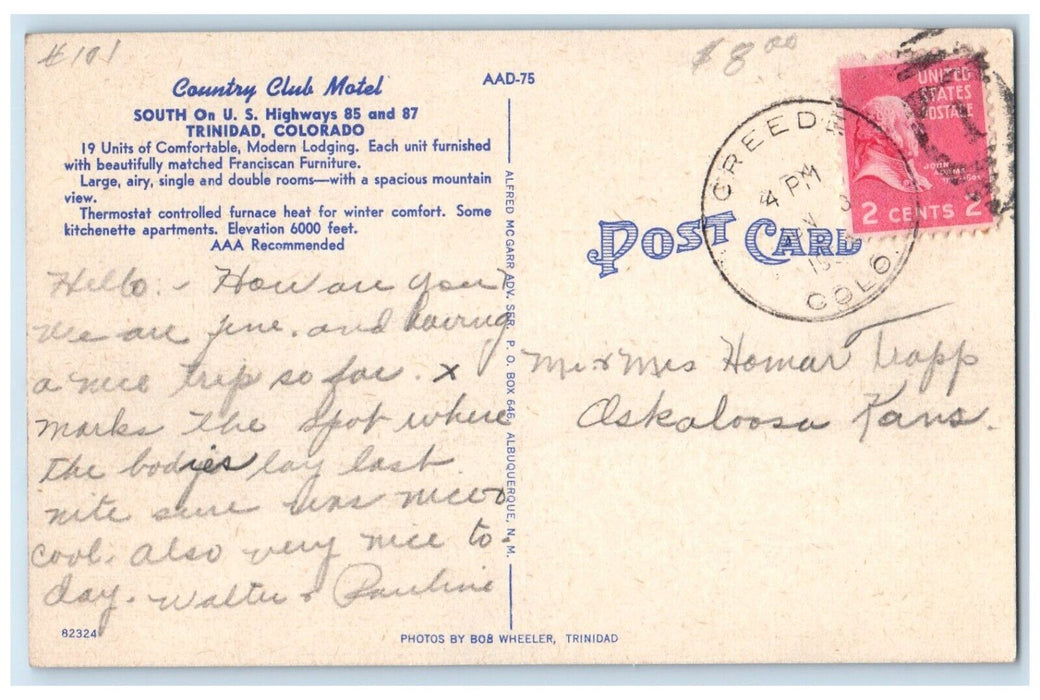 #101
$8.00
Country Club Motel
AAD-75
SOUTH On U. S. Highways 85 and 87
TRINIDAD, COLORADO
19 Units of Comfortable, Modern Lodging. Each unit furnished
with beautifully matched Franciscan Furniture.
Large, airy, single and double rooms—with a spacious mountain
view.
Thermostat controlled furnace heat for winter comfort. Some
kitchenette apartments. Elevation 6000 feet.
AAA Recommended
Hello:- How are you?
We are fine. and having
a nice trip so far. x
marks the spot where
the bodies lay last
nite sure was nice &
cool. Also very nice to-
day. Walter & Pauline
82324
PHOTOS BY BOB WHEELER, TRINIDAD
ALFRED MC GARR ADV. SER. P. O. BOX 646, ALBUQUERQUE, N. M.
POST CARD
CREEDE
4 PM
COLO.
UNITED
STATES
POSTAGE
JOHN
ADAMS
2 CENTS 2
Mr & Mrs Homar Trapp
Oskaloosa Kans.